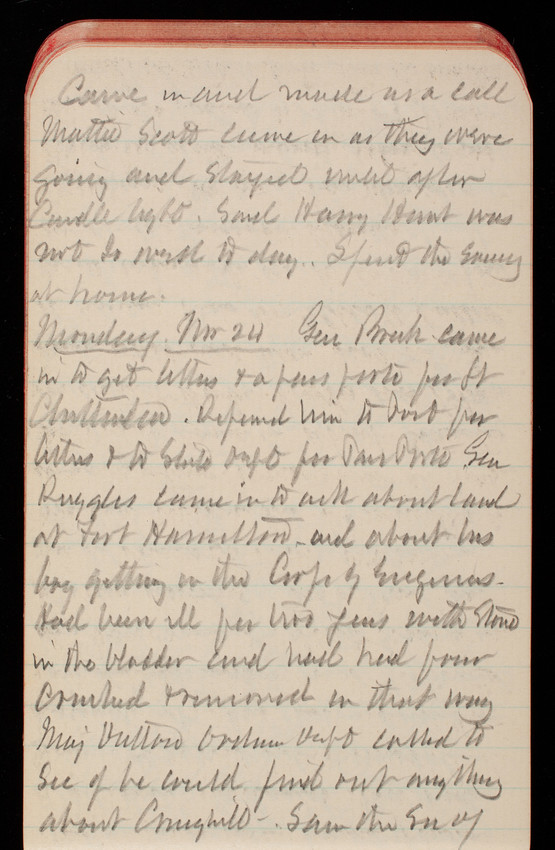 Came in and made us a call
Mattie Scott came in as they were
going and stayed until after
Candle light. Said Harry Hunt was
not so well to day. Spent the evening
at home.
Monday Nov 24 Gen Breck came
in to get letters & a pass porte for Lt
Chittenden. Refered him to Post for
letters & to State Dept for Pass Porte Gen
Ruggles came in to ask about land
at Fort Hamilton. and about his
boy getting in the Corps of Engineers.
Had been ill for two years with stone
in the bladder and had had four
crushed & removed in that way
Maj Dutton Ordnan Dept called to
See if he could find out anything
about Craighill. Saw the Sec of